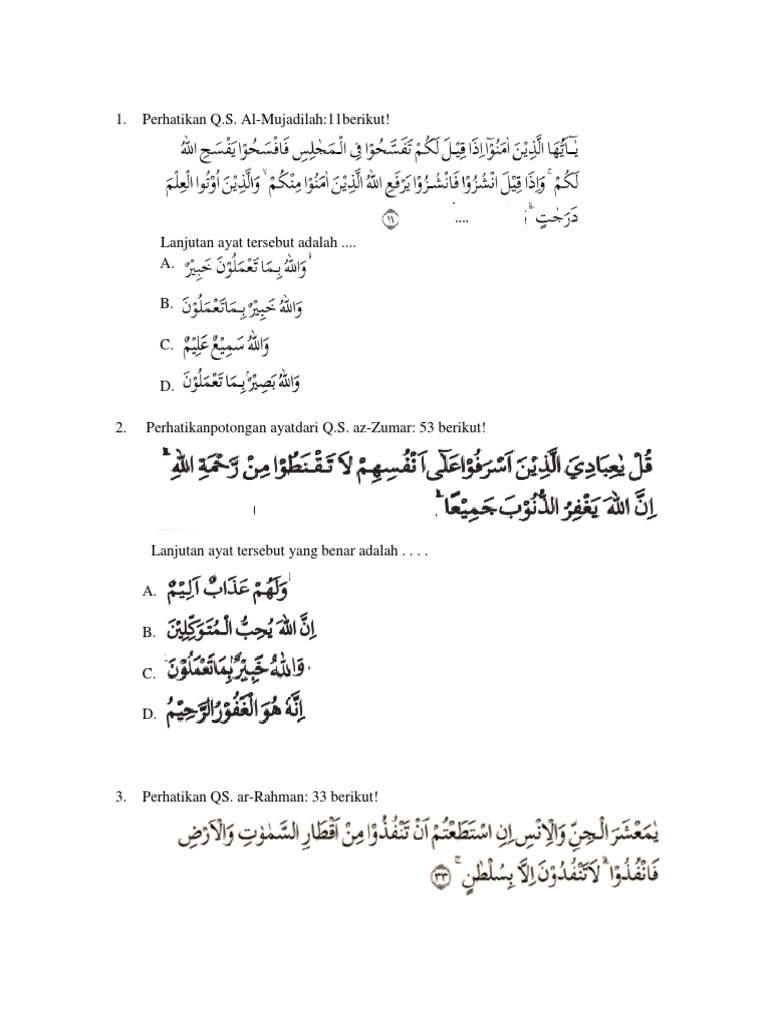 1. Perhatikan Q.S. Al-Mujadilah:11berikut!
يٰٓاَيُّهَا الَّذِيْنَ اٰمَنُوْٓا اِذَا قِيْلَ لَكُمْ تَفَسَّحُوْا فِى الْمَجٰلِسِ فَافْسَحُوْا يَفْسَحِ اللّٰهُ
لَكُمْ ۚ وَاِذَا قِيْلَ انْشُزُوْا فَانْشُزُوْا يَرْفَعِ اللّٰهُ الَّذِيْنَ اٰمَنُوْا مِنْكُمْ ۙ وَالَّذِيْنَ اُوْتُوا الْعِلْمَ
دَرَجٰتٍ ۗ .... ١١
Lanjutan ayat tersebut adalah ....
A. وَاللّٰهُ بِمَا تَعْمَلُوْنَ خَبِيْرٌ
B. وَاللّٰهُ خَبِيْرٌ بِمَا تَعْمَلُوْنَ
C. وَاللّٰهُ سَمِيْعٌ عَلِيْمٌ
D. وَاللّٰهُ بَصِيْرٌ بِمَا تَعْمَلُوْنَ
2. Perhatikanpotongan ayatdari Q.S. az-Zumar: 53 berikut!
قُلْ يٰعِبَادِيَ الَّذِيْنَ اَسْرَفُوْا عَلٰٓى اَنْفُسِهِمْ لَا تَقْنَطُوْا مِنْ رَّحْمَةِ اللّٰهِ ۗ
اِنَّ اللّٰهَ يَغْفِرُ الذُّنُوْبَ جَمِيْعًا ۗ
Lanjutan ayat tersebut yang benar adalah . . . .
A. وَلَهُمْ عَذَابٌ اَلِيْمٌ
B. اِنَّ اللّٰهَ يُحِبُّ الْمُتَوَكِّلِيْنَ
C. وَاللّٰهُ خَبِيْرٌ بِمَا تَعْمَلُوْنَ
D. اِنَّهٗ هُوَ الْغَفُوْرُ الرَّحِيْمُ
3. Perhatikan QS. ar-Rahman: 33 berikut!
يٰمَعْشَرَ الْجِنِّ وَالْاِنْسِ اِنِ اسْتَطَعْتُمْ اَنْ تَنْفُذُوْا مِنْ اَقْطَارِ السَّمٰوٰتِ وَالْاَرْضِ
فَانْفُذُوْا ۗ لَا تَنْفُذُوْنَ اِلَّا بِسُلْطٰنٍ ۚ ٣٣